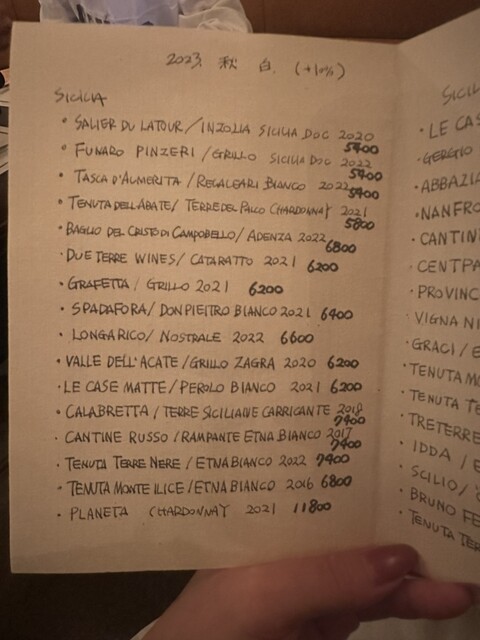 2023. 秋 白. (+10%)
SICILIA
• SALIER DU LATOUR / INZOLIA SICILIA DOC 2020
5400
• FUNARO PINZERI / GRILLO SICILIA DOC 2022
5400
• TASCA D'ALMERITA / REGALEARI BIANCO 2022
5400
• TENUTA DELL'ABATE / TERRE DEL PALCO CHARDONNAY 2021
5800
• BAGLIO DEL CRISTO DI CAMPOBELLO / ADENZA 2022
6800
• DUE TERRE WINES / CATARATTO 2021 6200
• GRAFETTA / GRILLO 2021 6200
• SPADAFORA / DON PIEITRO BIANCO 2021 6400
• LONGARICO / NOSTRALE 2022 6600
• VALLE DELL'ACATE / GRILLO ZAGRA 2020 6200
• LE CASE MATTE / PEROLO BIANCO 2021 6200
• CALABRETTA / TERRE SICILIANE CARRICANTE 2018
7400
• CANTINE RUSSO / RAMPANTE ETNA BIANCO 2017
7400
• TENUTA TERRE NERE / ETNA BIANCO 2022 7400
• TENUTA MONTE ILICE / ETNA BIANCO 2016 6800
• PLANETA CHARDONNAY 2021 11800
SICIL
• LE CAS
• GERGIO
• ABBAZIA
• NANFRO
• CANTIN
• CENTPA
• PROVINC
• VIGNA NI
• GRACI / E
• TENUTA MO
• TENUTA TE
• TRETERRE
• IDDA / E
• SCILIO /
• BRUNO FE
• TENUTA TER